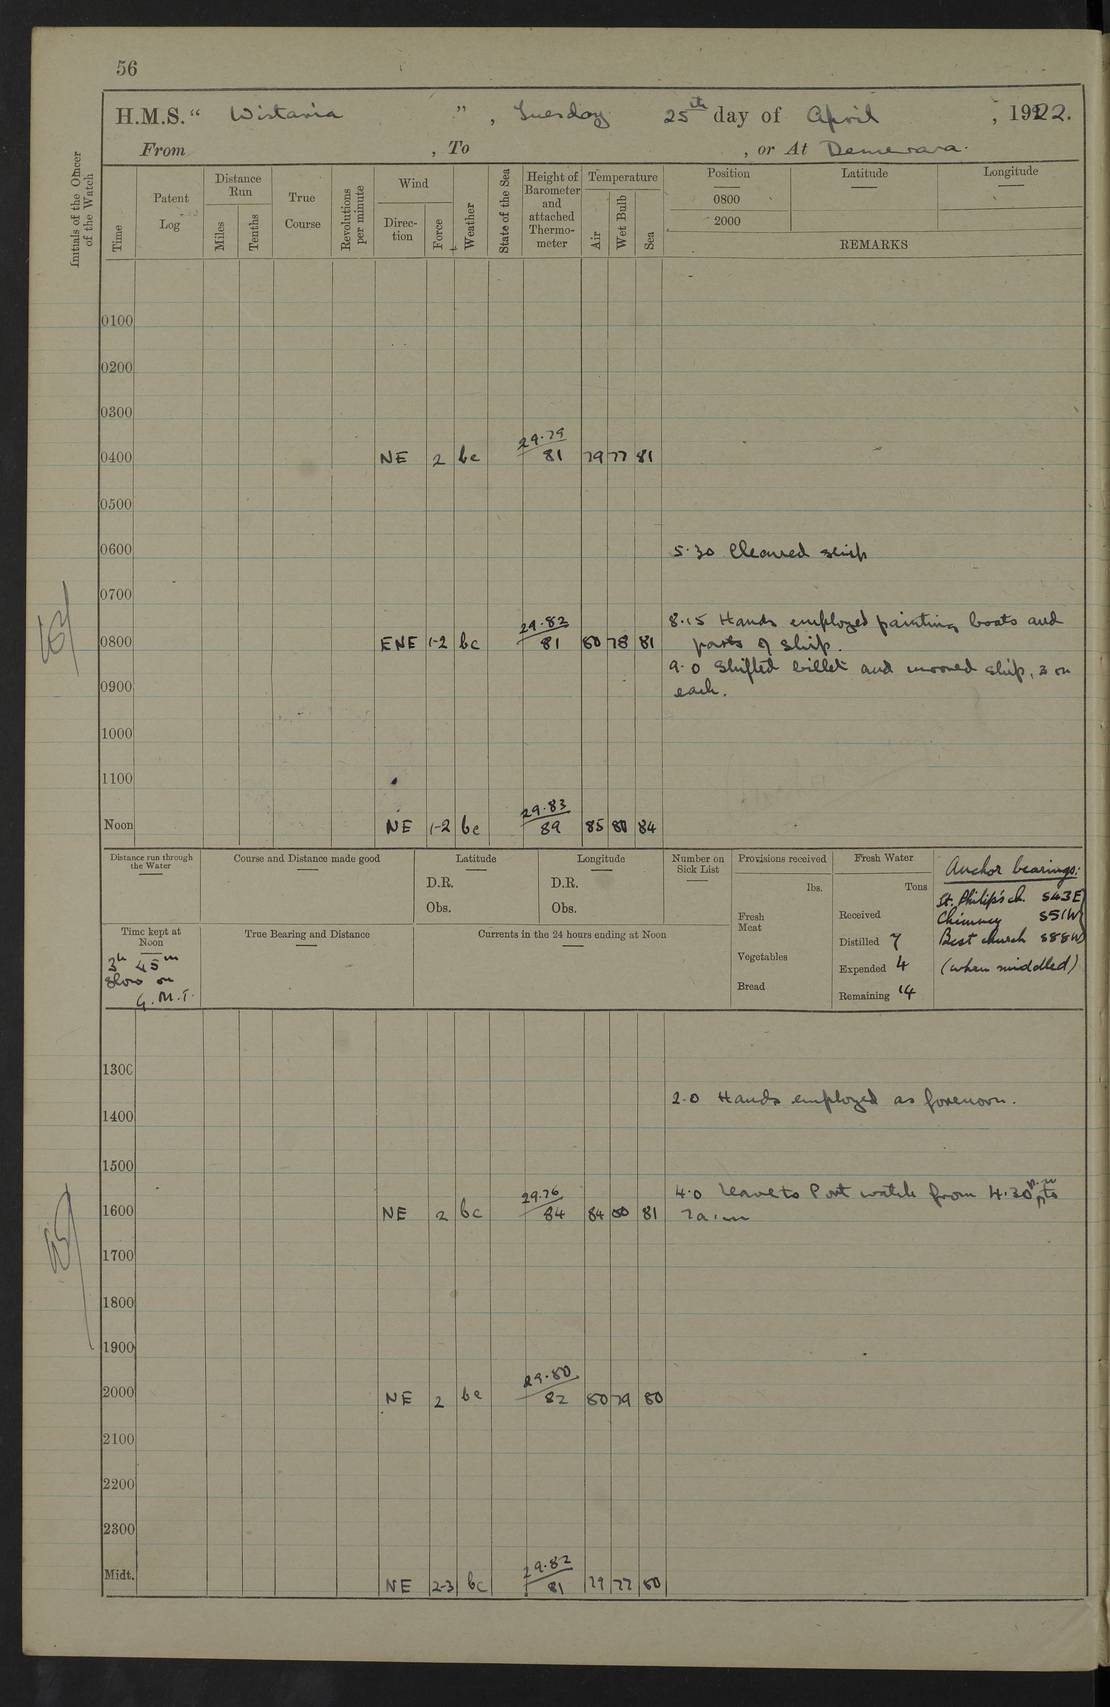 56
H.M.S. “ Wistaria ” , Tuesday 25th day of April , 1922.
From , To , or At Demerara.
Initials of the Officer of the Watch
Time
Patent Log
Distance Run
Miles
Tenths
True Course
Revolutions per minute
Wind
Direction
Force
Weather
State of the Sea
Height of Barometer and attached Thermometer
Temperature
Air
Wet Bulb
Sea
Position
Latitude
Longitude
0800
2000
REMARKS
0100
0200
0300
0400 NE 2 bc 29.79 81 79 77 81
0500
0600 5.30 Cleaned ship
0700
8.15 Hands employed painting boats and
0800 ENE 1-2 bc 29.82 81 80 78 81 parts of ship.
9.0 Shifted billet and moored ship, 3 on
0900 each.
1000
1100
Noon NE 1-2 bc 29.83 89 85 80 84
Distance run through the Water
Course and Distance made good
Latitude
D.R.
Obs.
Longitude
D.R.
Obs.
Number on Sick List
Provisions received
lbs.
Fresh Meat
Vegetables
Bread
Fresh Water
Tons
Received
Distilled 7
Expended 4
Remaining 14
Anchor bearings:
St. Philip's ch. S43E
Chimney S51W
Best church S88W
(when middled)
Time kept at Noon
3h 45m
slow on
G.M.T.
True Bearing and Distance
Currents in the 24 hours ending at Noon
1300
2.0 Hands employed as forenoon.
1400
1500
4.0 Leave to Port watch from 4.30 p.m to
1600 NE 2 bc 29.76 84 84 80 81 7a.m
1700
1800
1900
2000 NE 2 bc 29.80 82 80 79 80
2100
2200
2300
Midt. NE 2-3 bc 29.82 81 79 77 80